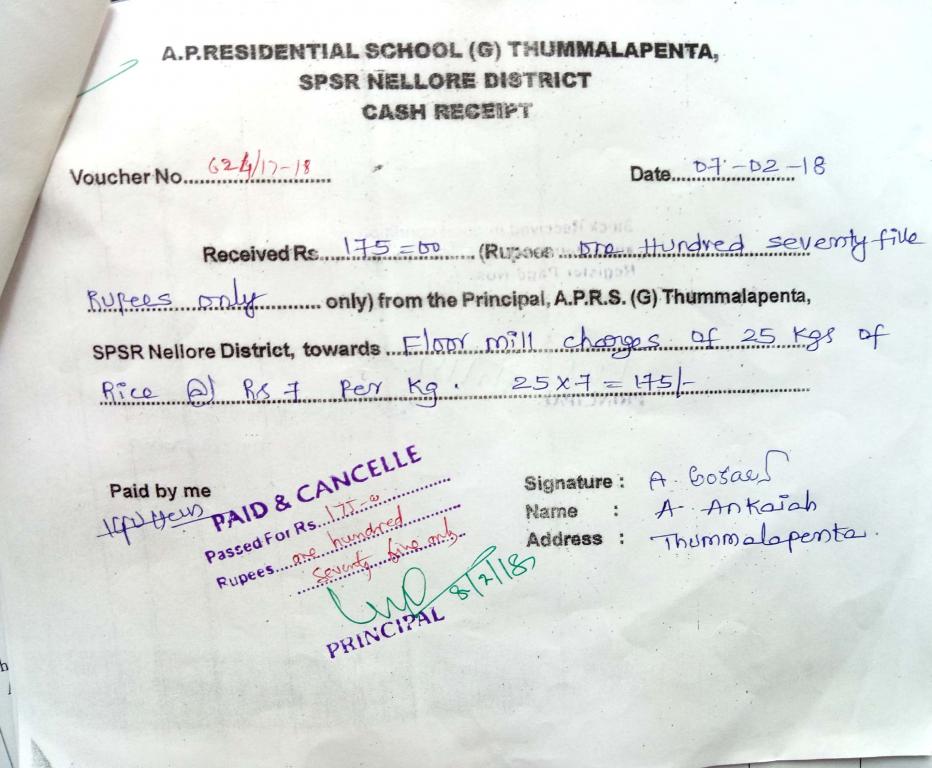 A.P.RESIDENTIAL SCHOOL (G) THUMMALAPENTA,
SPSR NELLORE DISTRICT
CASH RECEIPT
Voucher No. 624/17-18 Date 07-02-18
Received Rs. 175=00 (Rupees one Hundred seventy five
Rupees only only) from the Principal, A.P.R.S. (G) Thummalapenta,
SPSR Nellore District, towards Floor mill charges of 25 Kgs of
Rice @ Rs 7 Per Kg. 25 x 7 = 175/-
Paid by me
PAID & CANCELLE
Passed For Rs. 175-0
Rupees one hundred
seventy five only
8/2/18
PRINCIPAL
Signature : A.
Name : A. Ankaiah
Address : Thummalapenta.